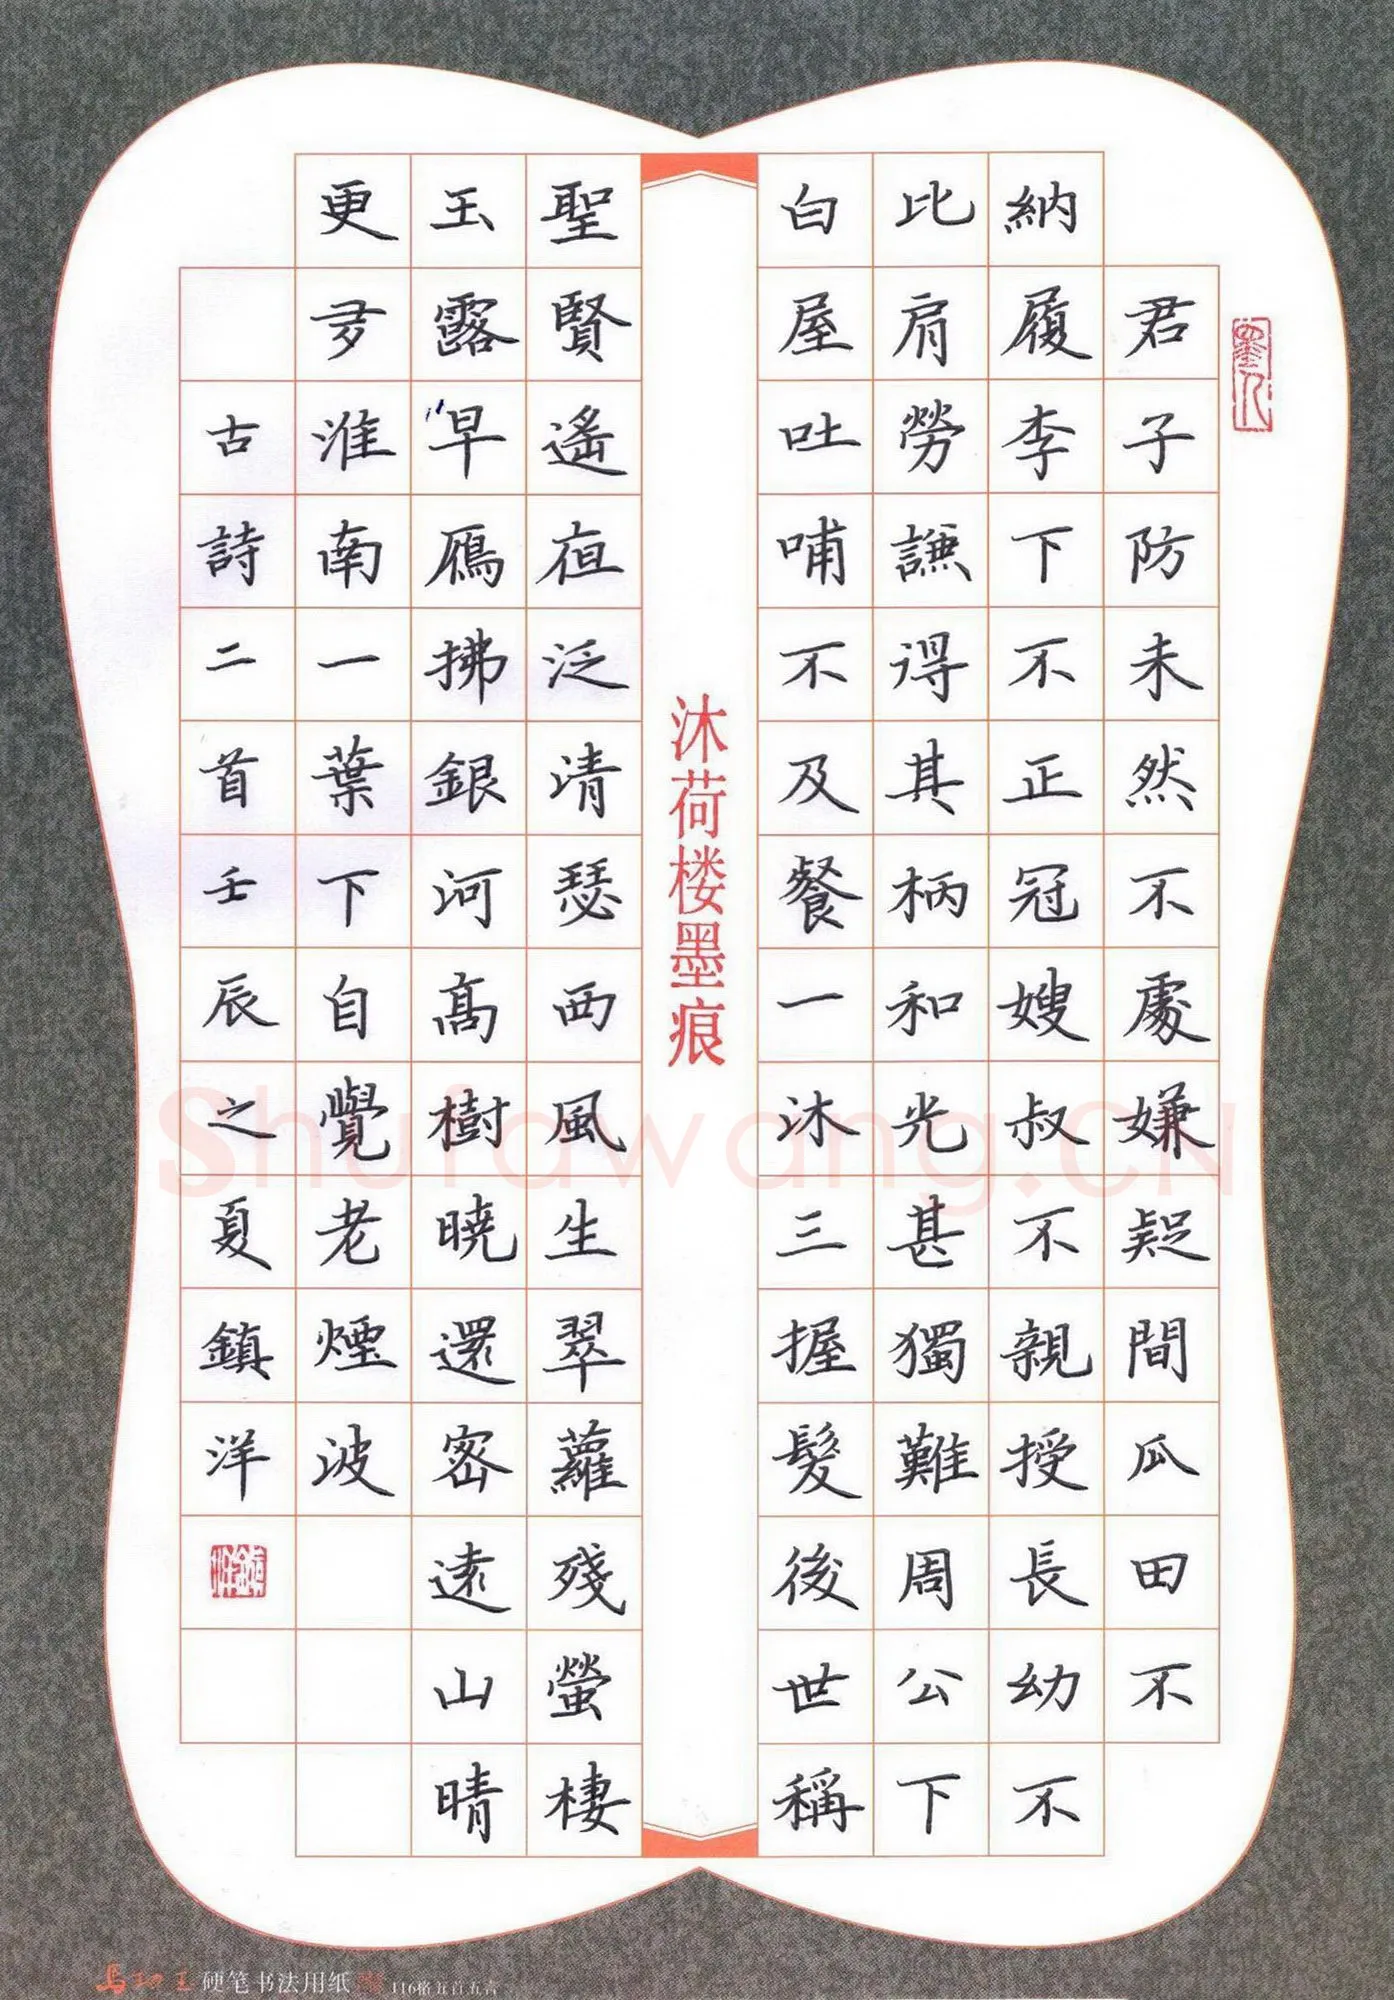 君子防未然不處嫌疑間瓜田不
納履李下不正冠嫂叔不親授長幼不
比肩勞謙得其柄和光甚獨難周公下
白屋吐哺不及餐一沐三握髮後世稱
沐荷楼墨痕
聖賢遙夜泛清瑟西風生翠蘿殘螢棲
玉露早鴈拂銀河高樹曉還密遠山晴
更多淮南一葉下自覺老煙波
古詩二首壬辰之夏鎮洋
Shufawang.CN
硬笔书法用纸
116格五首五言